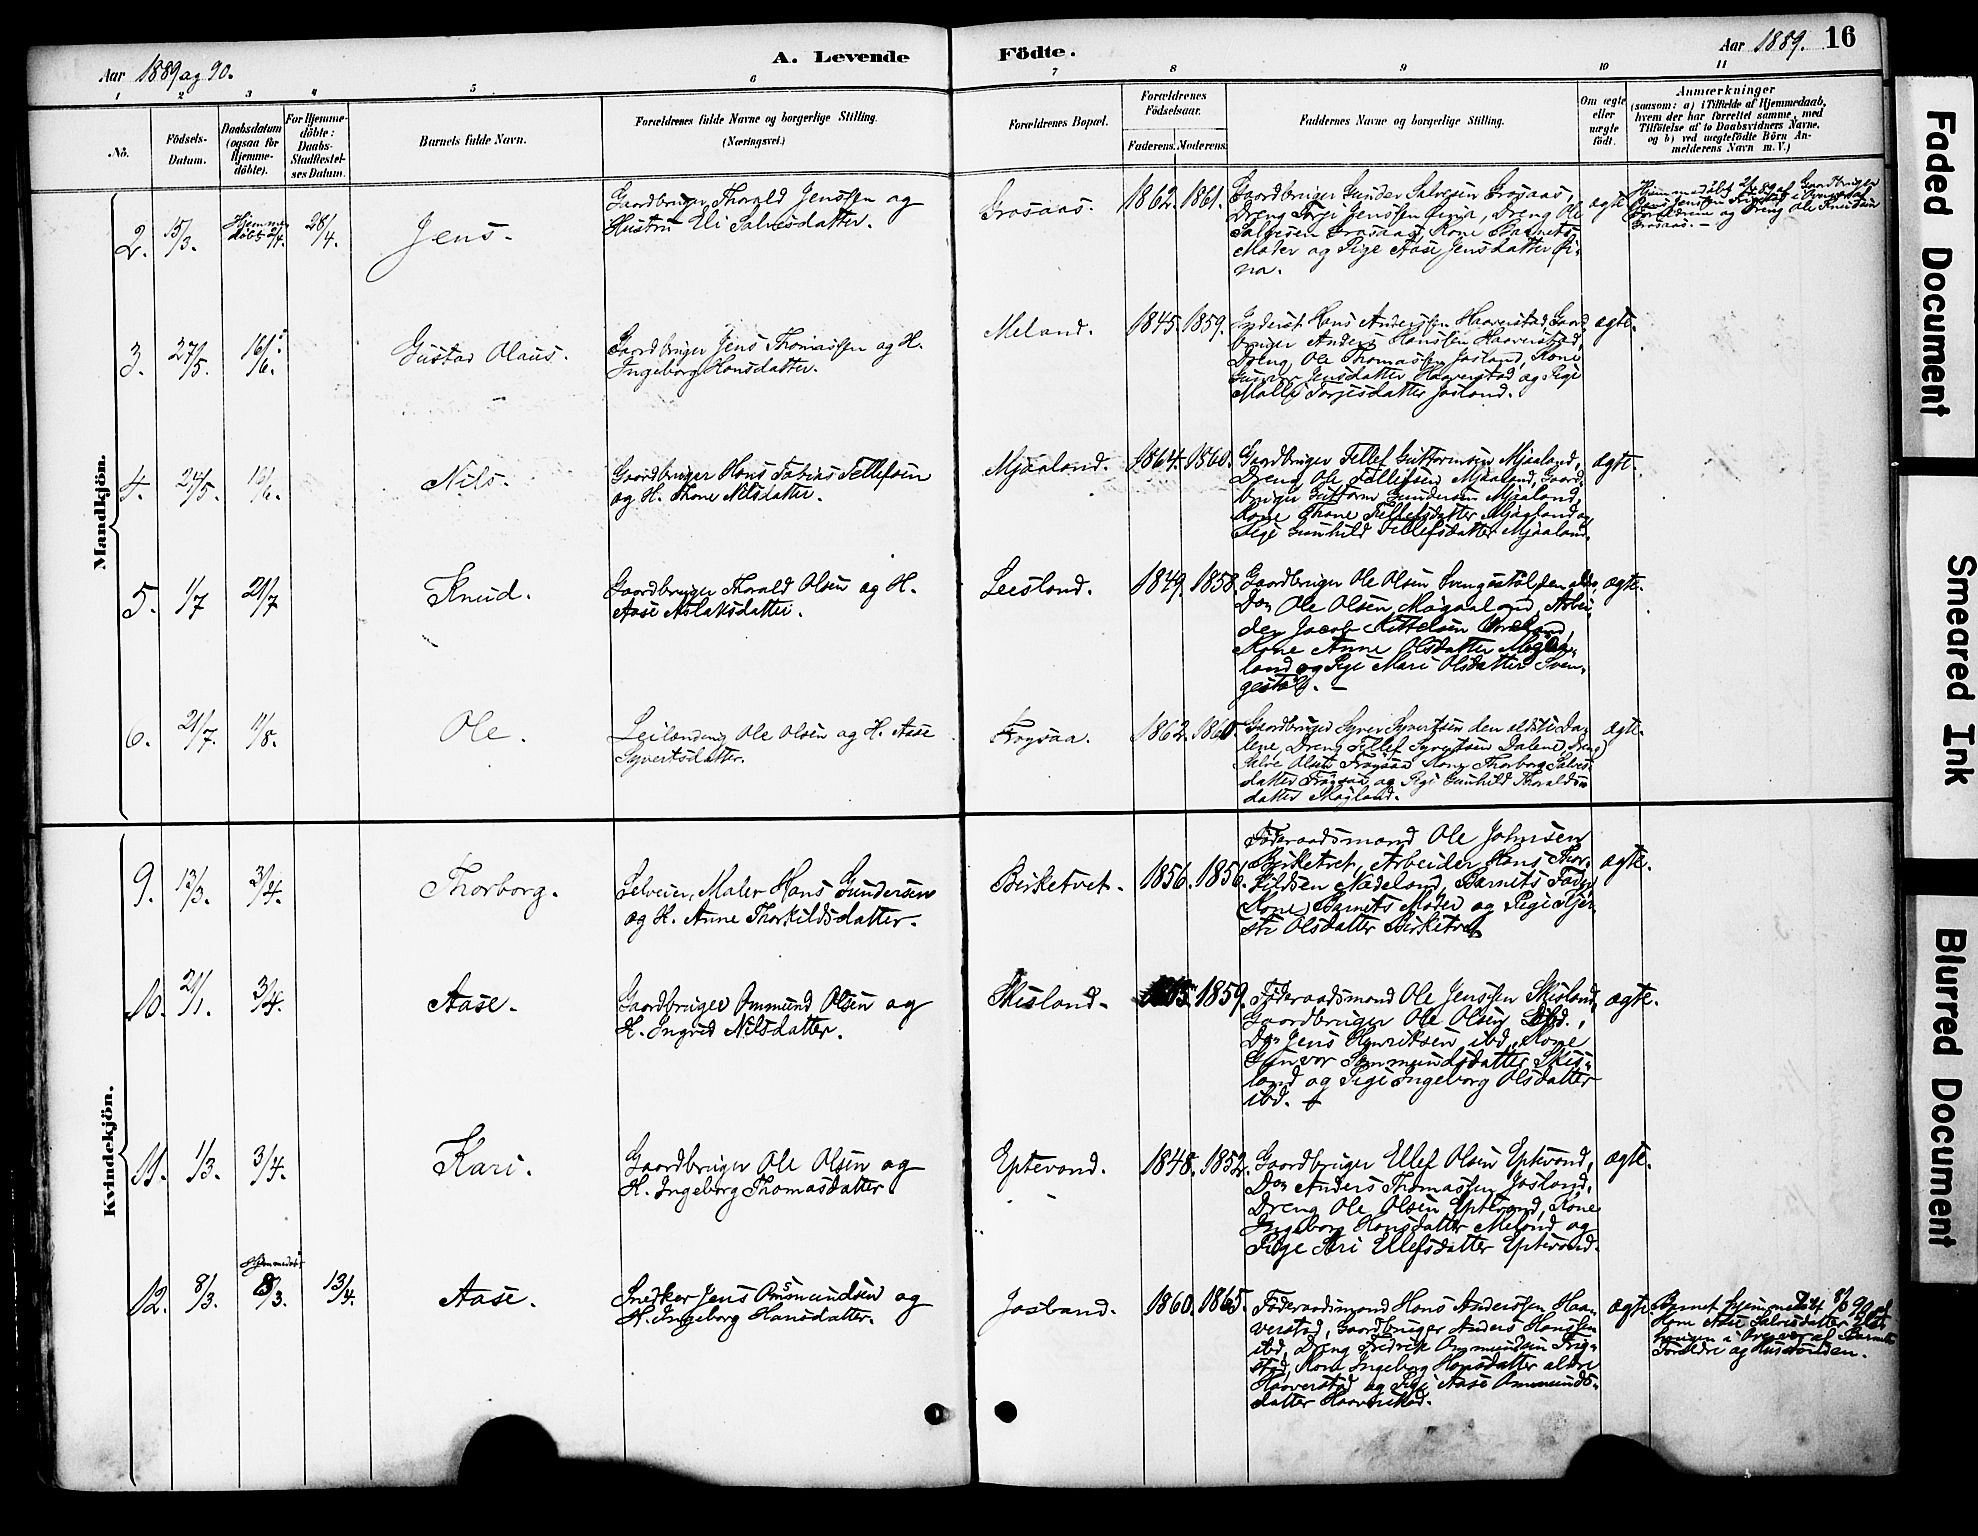 Aar 1889 og 90.
A. Levende
Födte.
Aar 1889. 16
1 2 3 4 5 6 7 8 9 10 11
No.
Födsels-
Datum.
Daabsdatum
(ogsaa for
Hjemme-
döbte).
For Hjemme-
döbte:
Daabs-
Stadfæstel-
ses Datum.
Barnets fulde Navn.
Forældrenes fulde Navne og borgerlige Stilling.
(Næringsvei.)
Forældrenes Bopæl.
Forældrenes
Födselsaar.
Faderens. Moderens.
Faddernes Navne og borgerlige Stilling.
Om ægte
eller
uægte
födt.
Anmærkninger
(saasom: a) i Tilfælde af Hjemmedaab,
hvem der har forrettet samme, med
Tilföielse af to Daabsvidners Navne,
og b) ved uægtefödte Börn An-
melderens Navn m. V.)
Mandkjön.
2. 15/3. Hjemme-
döbt 2/4. 28/4.
Jens.
Gaardbruger Thorald Jenssen og
Hustru Eli Salvesdatter.
Grosaas. 1862. 1861.
Gaardbruger Gunder Salvesen Grosaas,
Dreng Terje Jenssen, Dreng Ole
Salvesen Grosaas, Kone Barnets
Moder og Pige Aase Jensdatter
ægte
Hjemmedöbt 2/4 89 af Gaardbruger
Forældrene og Dreng Ole Knudsen
Grosaas. -
3. 27/5. 16/6.
Gustav Olaus.
Gaardbruger Jens Thomassen og H.
Ingeborg Hansdatter.
Meland. 1845. 1859.
Hans Anderssen Haaverstad, Gaard-
bruger Anders Hanssen Haaverstad,
Dreng Ole Thomassen Josland, Kone
Gunvor Jensdatter Haaverstad og Pige
Malli Torjesdatter Josland.
ægte.
4. 24/5. 16/6.
Nils.
Gaardbruger Hans Tobias Tellefsen
og H. Thone Nilsdatter.
Mjaaland. 1864. 1860.
Gaardbruger Tellef Guttormsen Mjaaland,
Dreng Ole Tellefsen Mjaaland, Gaard-
bruger Guttorm Gundersen Mjaaland,
Kone Thone Tellefsdatter Mjaaland og
Pige Gunhild Tellefsdatter Mjaaland.
ægte.
5. 1/7 21/7
Knud.
Gaardbruger Thorald Olsen og H.
Aase Aslaksdatter.
Leesland. 1849. 1858.
Gaardbruger Ole Olsen Svengestöl den ældre,
Do Ole Olsen Mögaaland, Arbei-
der Jacob Kittelsen
Kone Anne Olsdatter Mögaa-
land og Pige Mari Olsdatter Sven-
gestöl. -
ægte.
6. 21/7. 11/8.
Ole.
Leilænding Ole Olsen og H. Aase
Syvertsdatter.
Frøysaa. 1862. 1860.
Gaardbruger Syver Syvertsen den ældste Da-
lene, Dreng Tellef Syvertsen Dalene, Dreng
Salve Olsen Frøysaa, Kone Thorborg Salves-
datter Frøysaa og Pige Gunhild Thoralds-
datter Møgland.
ægte.
Kvindekjön.
9. 13/3. 3/4.
Thorborg.
Selveier, Maler Hans Gundersen
og H. Anne Thorkildsdatter.
Birketvet. 1856. 1856.
Föderaadsmand Ole Johnsen
Birketvet, Arbeider Hans Thor-
kildsen Nadeland, Barnets Fader,
Kone Barnets Moder og Pige Kjer-
sti Olsdatter Birketvet
ægte.
10. 21/1. 3/4.
Aase.
Gaardbruger Ommund Olsen og
H. Ingrid Nilsdatter.
Skisland. 1859.
Föderaadsmand Ole Jenssen Skisland,
Gaardbruger Ole Olsen ibd.,
Do Jens Henriksen ibd., Kone
Gunvor Ommundsdatter Skis-
land og Pige Ingeborg Olsdatter
ibd.
ægte.
11. 1/3. 3/4.
Kari.
Gaardbruger Ole Olsen og
H. Ingeborg Thomasdatter
Eptevand. 1848. 1852.
Gaardbruger Ellef Olsen Eptevand,
Do Anders Thomassen Josland,
Dreng Ole Olsen Eptevand, Kone
Ingeborg Hansdatter Meland og
Pige Siri Ellefsdatter Eptevand.
ægte.
12. 8/3. Hjemmedöbt
8/3. 13/4.
Aase.
Snedker Jens Omsmundsen og
H. Ingeborg Hansdatter.
Josland. 1860. 1865.
Föderaadsmand Hans Anderssen Haa-
verstad, Gaardbruger Anders Hanssen
ibd., Dreng Fredrik Ommundsen Frig-
stad, Kone Ingeborg Hansdatter ældre
Haaverstad og Pige Aase Ommunds-
datter Haaverstad.
ægte.
Barnet hjemmedöbt 8/3 90 af
Kone Aase Salvesdatter
i Overvær af Barnets
Forældre og Husmanden.
Faded Document
Smeared Ink
Blurred Document